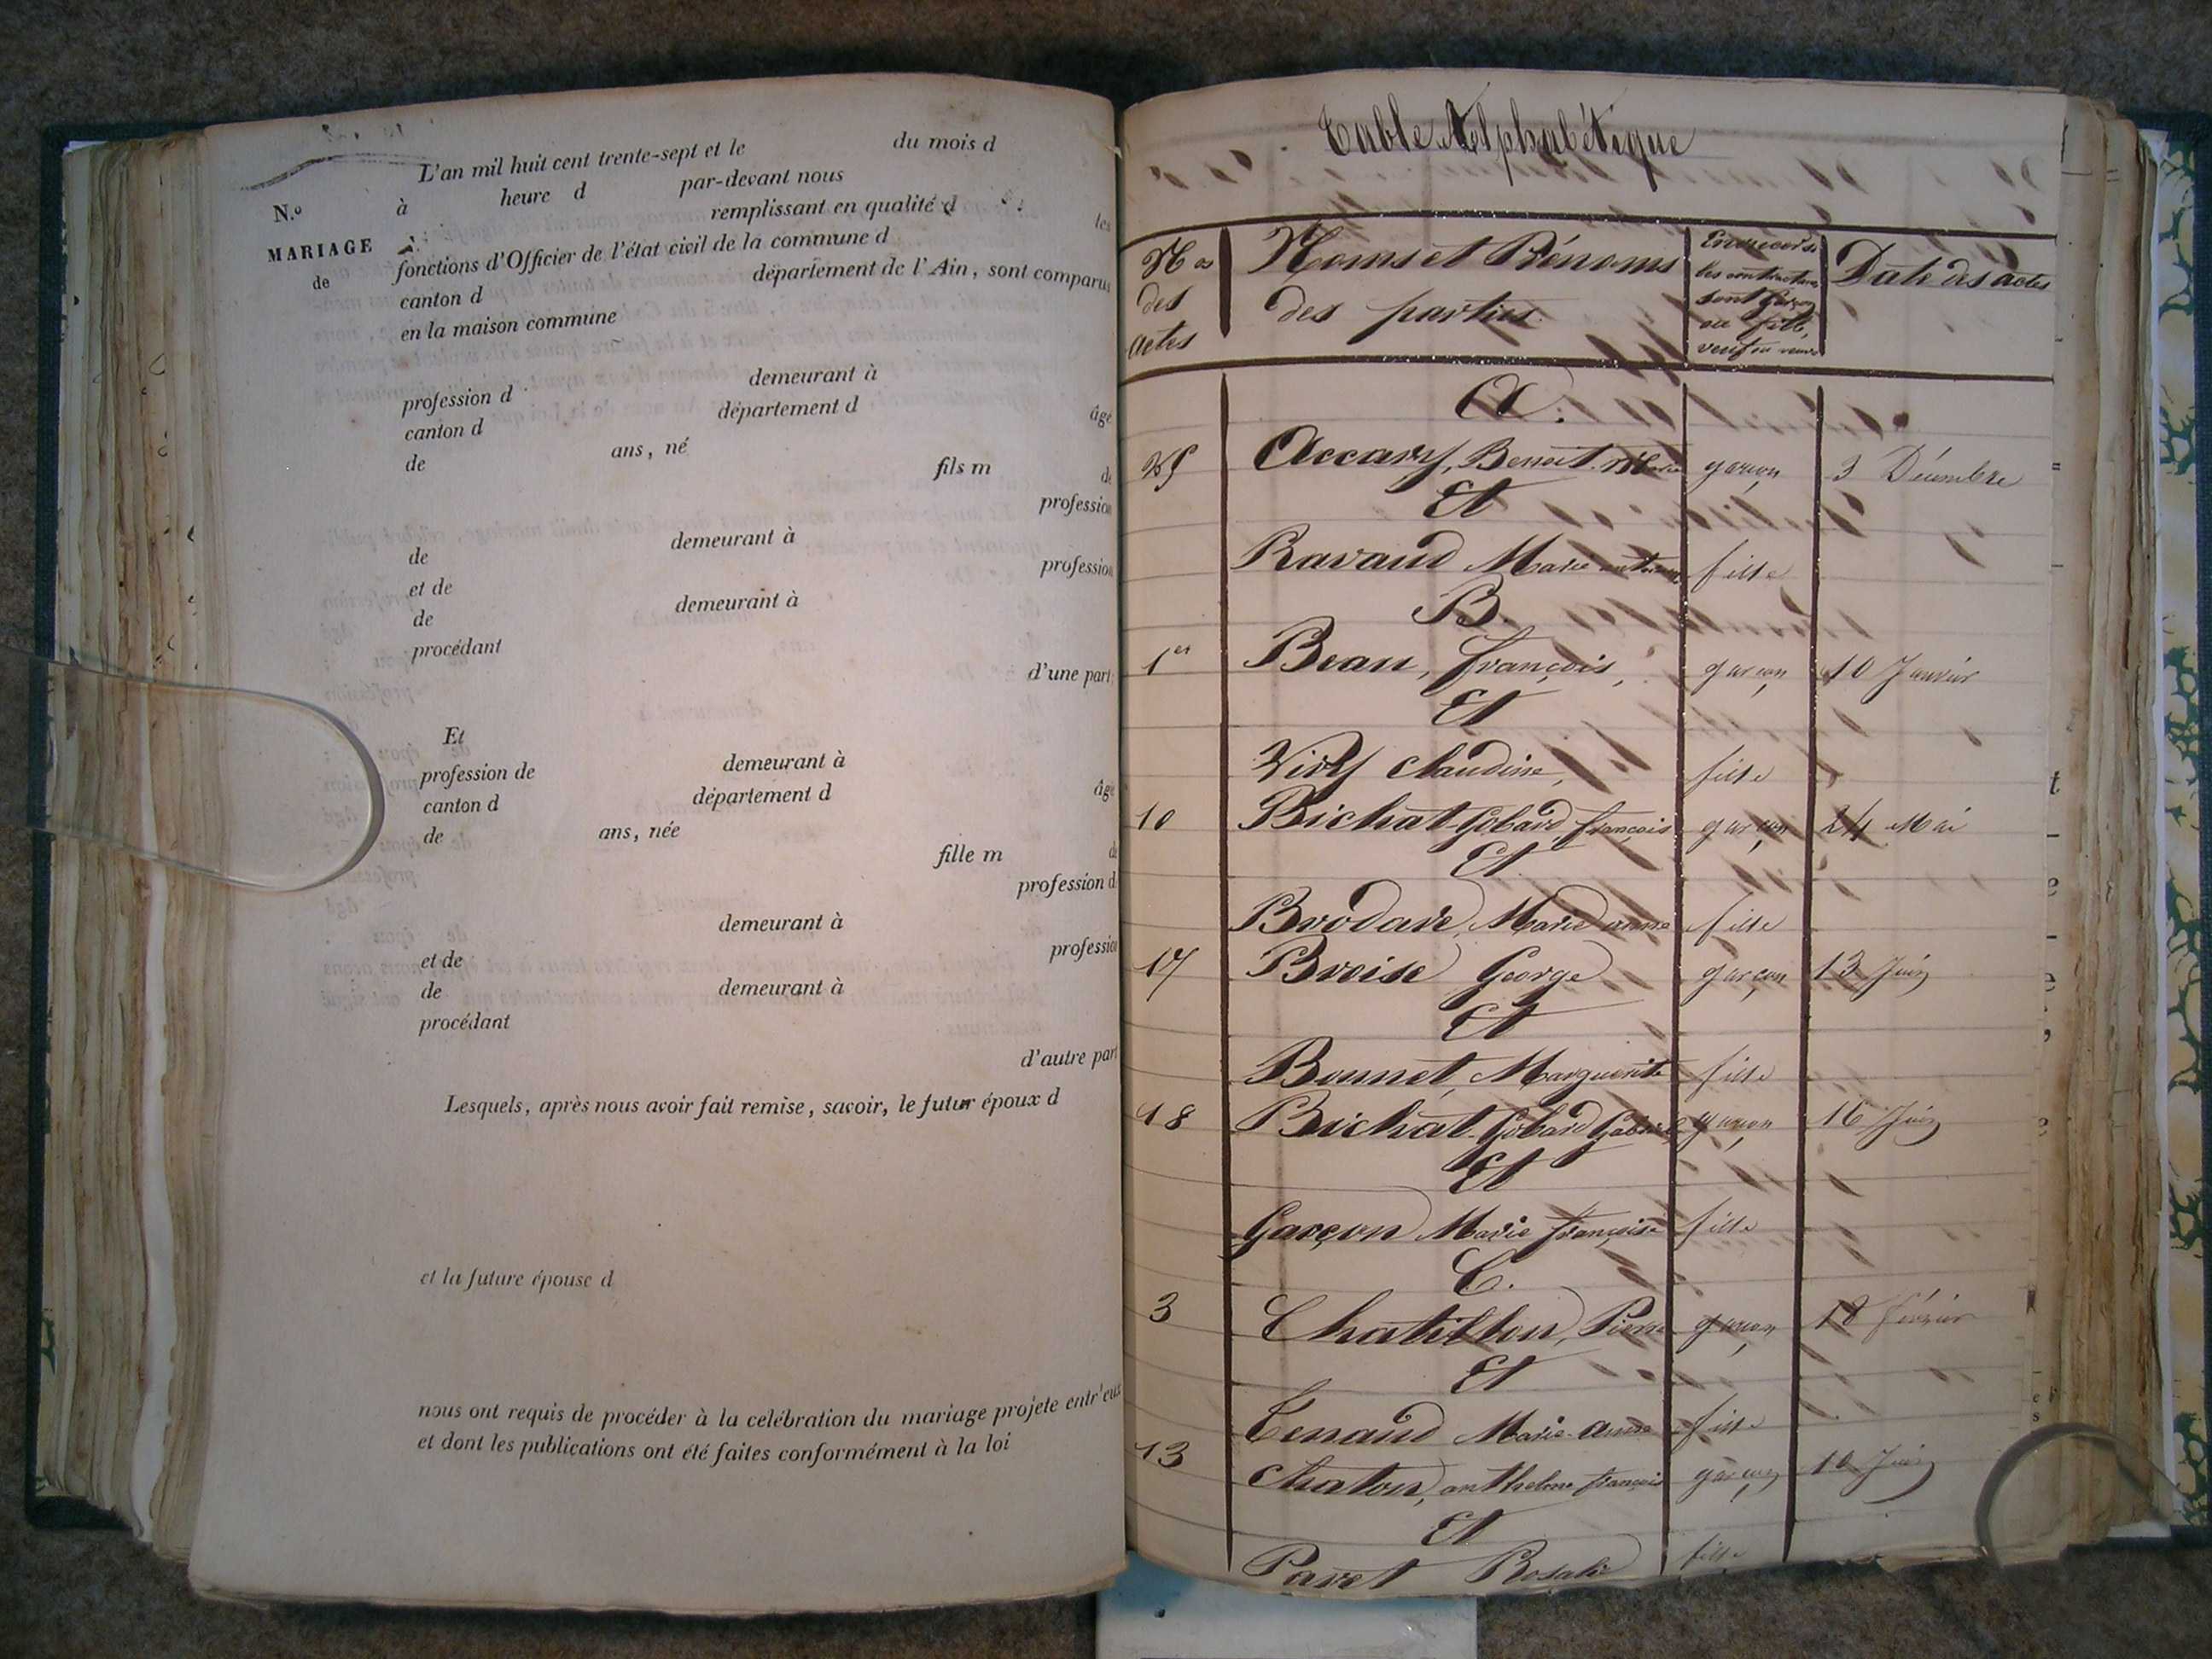 L'an mil huit cent trente-sept et le du mois d
N.o à heure d par-devant nous
remplissant en qualité d les
MARIAGE fonctions d'Officier de l'état civil de la commune d
de canton d département de l'Ain, sont comparus
en la maison commune
profession d demeurant à
canton d département d âgé
de ans, né
fils m de
profession
de demeurant à
et de profession
de demeurant à
procédant
d'une part
Et
profession de demeurant à
canton d département d âgé
de ans, née
fille m de
profession d
demeurant à
et de profession
de demeurant à
procédant
d'autre part
Lesquels, après nous avoir fait remise, savoir, le futur époux d
et la future épouse d
nous ont requis de procéder à la celébration du mariage projete entr'eux
et dont les publications ont été faites conformément à la loi
Table Alphabétique
Nos des actes
Noms et Prénoms des parties
les contractans sont garçon ou fille, veuf ou veuve
Date des actes
A.
Accary, Benoit garçon 3 Décembre
Et
Ravaud Marie fille
B.
1er Beau, françois, garçon 10 Janvier
Et
Viry Claudine, fille
10 Bichat-Gobard, françois garçon 24 Mai
Et
Brodare, Marie anne fille
17 Broise George garçon 13 Juin
Et
Bonnet, Marguerite fille
18 Bichat-Gobard Gabriel garçon 16 Juin
Et
Garçon Marie françoise fille
C.
3 Chatillon, Pierre garçon 18 février
Et
Tenand Marie-anne fille
13 Chaton, anthelme françois garçon 10 Juin
Et
Pavet Rosalie fille